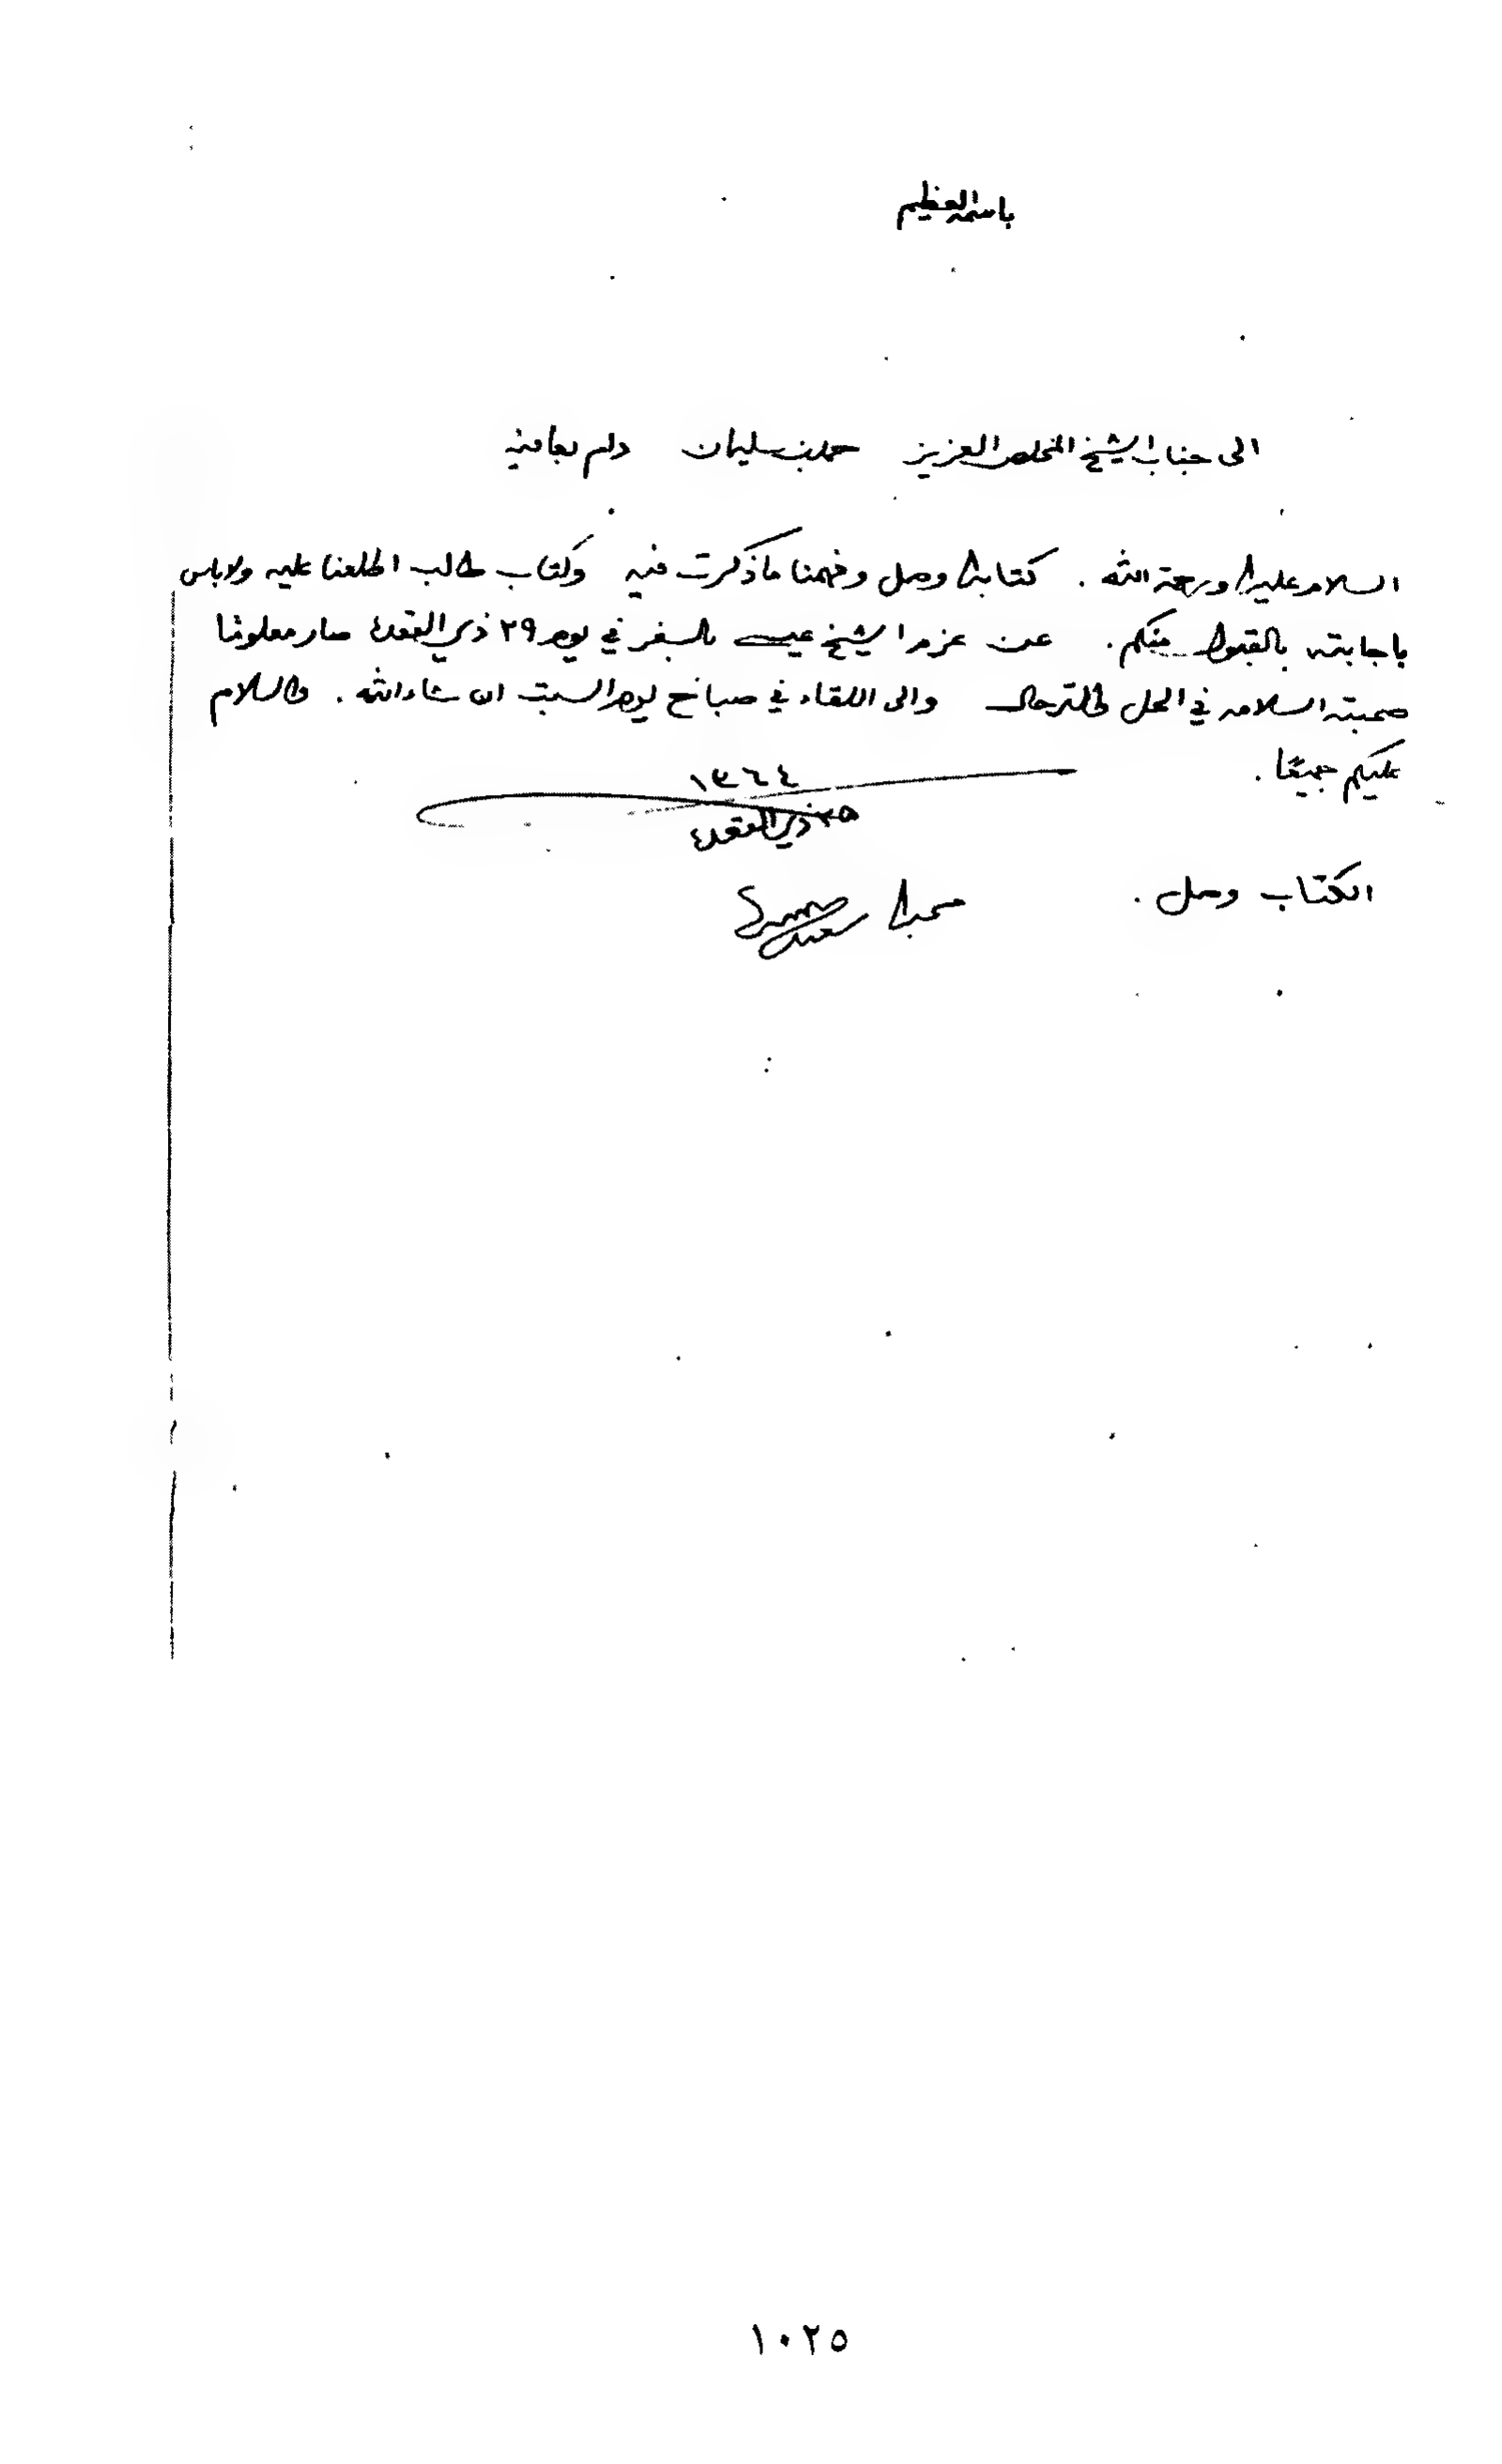 باسمه العظيم
الى جناب الشيخ المخلص العزيز حمد بن سليمان دام بعافيه
السلام عليك ورحمة الله . كتابك وصل وفهمنا ماذكرت فيه وكتاب طالب اطلعنا عليه ولاباس
باجابته بالقبول منكم . عن عزم الشيخ عيسى بالسفر في يوم ٢٩ ذي القعدة صار معلومًا
صحبته السلامه في الحل والترحال والى اللقاء في صباح يوم السبت ان شاء الله . والسلام
عليكم جميعًا .
١٣٦٤
ذي القعدة
الكتاب وصل . محبك
١٠٢٥